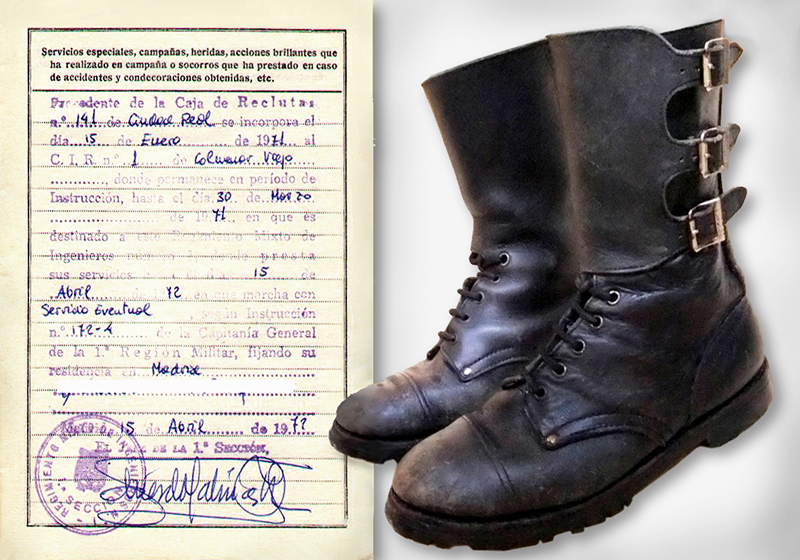 Servicios especiales, campañas, heridas, acciones brillantes que
ha realizado en campaña o socorros que ha prestado en caso
de accidentes y condecoraciones obtenidas, etc.
Procedente de la Caja de Reclutas
n.º 191 de Ciudad Real se incorpora el
día 15 de Enero de 1971 al
C. I. R. n.º 1 de Colmenar Viejo
, donde permanece en período de
Instrucción, hasta el día 30 de Marzo
de 1971 en que es
destinado a este Regimiento Mixto de
Ingenieros
sus servicios 15 de
Abril 72 en que marcha con
Servicio Eventual , según Instrucción
n.º 172-4 de la Capitanía General
de la 1.ª Región Militar, fijando su
residencia en Madrid
y
15 de Abril de 1972
EL DE LA 1.ª SECCIÓN,
REGIMIENTO MIXTO DE INGENIEROS
1.ª SECCIÓN